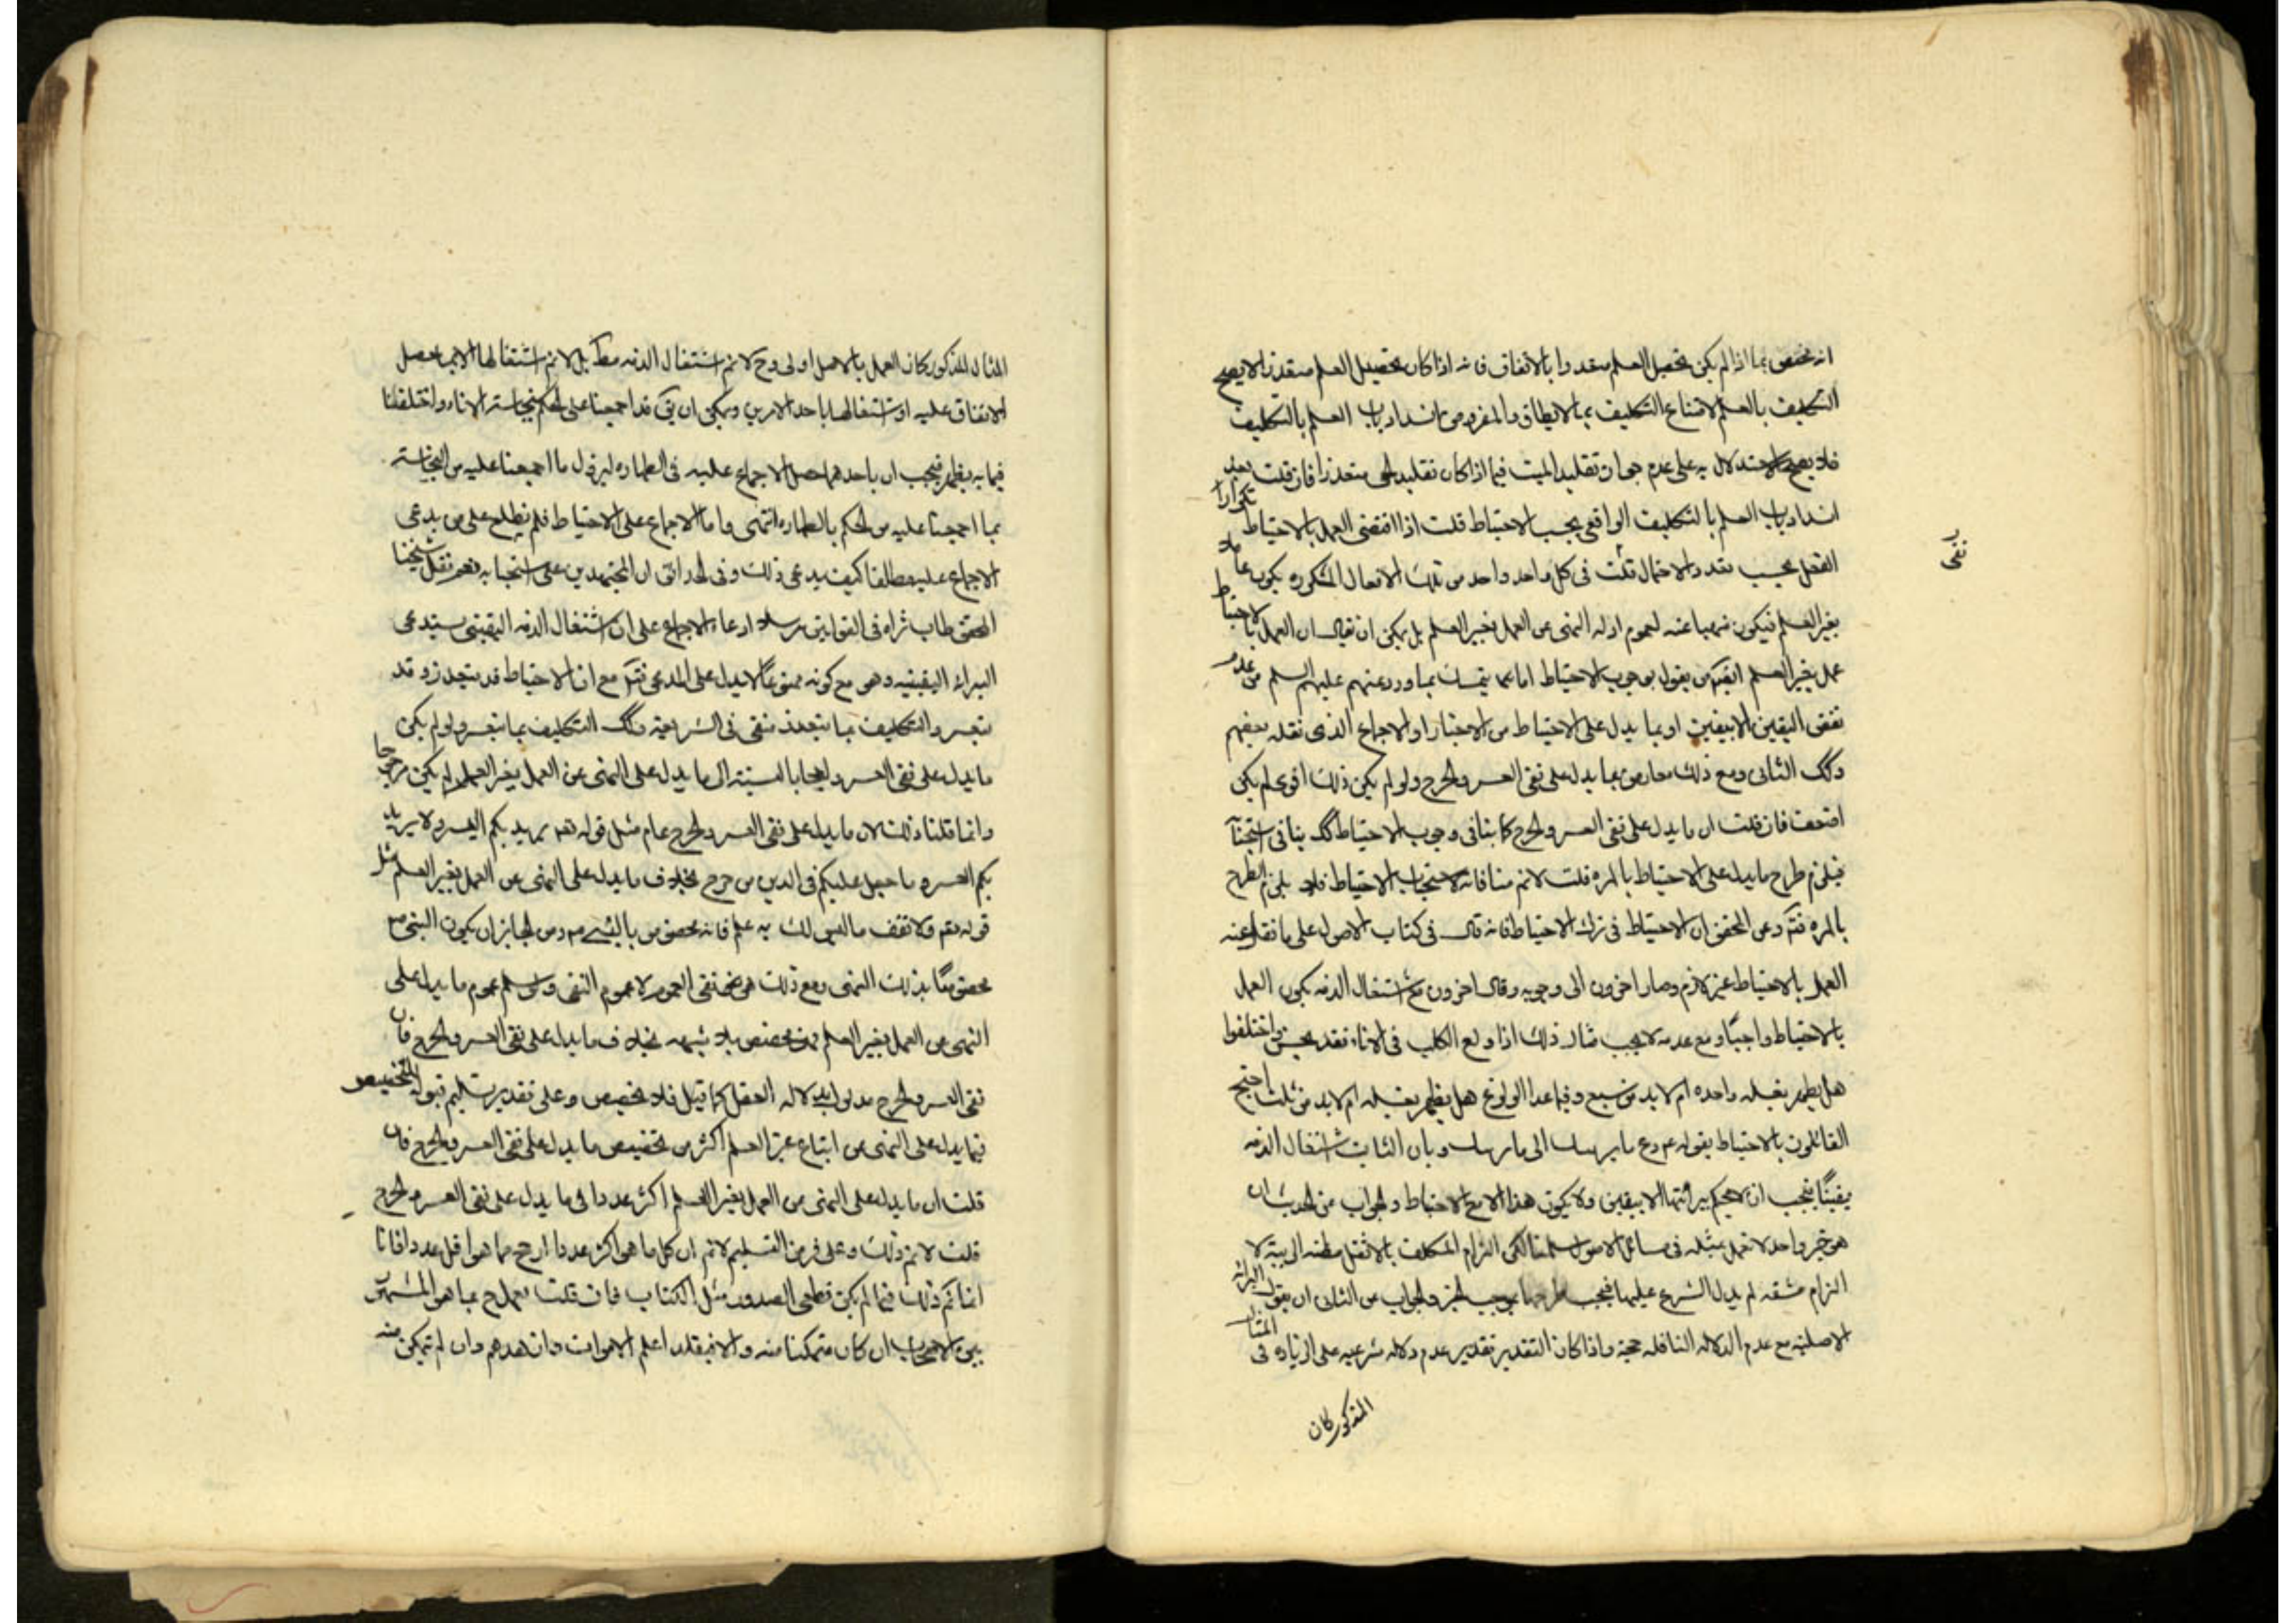 انه مختص بما اذا لم يكن تحصيل العلم متعذرا بالاتفاق فانه اذا كان تحصيل العلم متعذرا لا يصح
التكليف بالعلم لامتناع التكليف بما لا يطاق والمفروض انسداد باب العلم بالتكليف
فلا يصح الاستدلال به على عدم جواز تقليد الميت فيما اذا كان تقليد الحى متعذرا فان قلت بعد
انسداد باب العلم بالتكليف الواقعى يجب الاحتياط قلت اذا اقتضى العمل بالاحتياط تكرار
الفعل بحسب تعدد الاحتمال قلت فى كل واحد واحد من تلك الافعال المتكرره يكون عاملا
بغير العلم فيكون منهيا عنه لعموم ادله النهى عن العمل بغير العلم بل يمكن ان يقال ان العمل بالاحتياط
عمل بغير العلم من يقول بوجوب الاحتياط اما يتمسك بما ورد عنهم عليهم السلم من عدم
نقض اليقين الا بيقين او بما يدل على الاحتياط من الاخبار او الاجماع الذى نقله بعضهم
وكك الثانى ومع ذلك معارض بما يدل على نفى العسر والحرج ولو لم يكن ذلك اقوى لم يكن
اضعف فان قلت ان ما يدل على نفى العسر والحرج كما ينافى وجوب الاحتياط كك ينافى استحبابه
فيلزم طرح ما يدل على الاحتياط بالمره قلت لانم منافاته لاستحباب الاحتياط فلا يلزم الطرح
بالمره فتم وعن المحقق ان الاحتياط فى ترك الاحتياط فانه قال فى كتاب الاصول على ما نقل عنه
العمل بالاحتياط غير لازم وصار اخرون الى وجوبه وقال اخرون مع اشتغال الذمه يكون العمل
بالاحتياط واجبا ومع عدمه لا يجب مثال ذلك اذا ولغ الكلب فى الاناء فقد نجس واختلفوا
هل يطهر بغسله واحده ام لا بد من سبع وفيما عدا الولوغ هل يطهر بغسله ام لا بد من ثلث احتج
القائلون بالاحتياط بقوله ع دع ما يريبك الى ما لا يريبك وبان الثابت اشتغال الذمه
يقينا فيجب ان لا يحكم ببرائتها الا بيقين ولا يكون هذا الا مع الاحتياط والجواب عن الحديث ان
هو خبر واحد لا نعمل بمثله فى مسائل الاصول سلمنا لكن الزام المكلف بالاثقل مظنه الريبه لا
الزام مشقه لم يدل الشرع عليها فيجب طرحها بموجب الخبر والجواب عن الثانى ان نقول البرائه
الاصليه مع عدم الدلاله الناقله حجه واذا كان التقدير تقدير عدم دلاله شرعيه على الزياده فى المثال
المذكور كان
نفى
المثال المذكور كان العمل بالاصل اولى وح لانم اشتغال الذمه مط بل لانم اشتغالها الا بما حصل
الاتفاق عليه او اشتغالها باحد الامرين ويمكن ان يق قد اجمعنا على الحكم بنجاسته الاناء واختلفنا
فيما به يطهر فيجب ان ياخذ بما حصل الاجماع عليه فى الطهاره ليزول ما اجمعنا عليه من النجاسته
بما اجمعنا عليه من الحكم بالطهاره انتهى واما الاجماع على الاحتياط فلم نطلع على من يدعى
الاجماع عليه مطلقا كيف يدعى ذلك وفى الحدائق ان المجتهدين على استحبابه نعم نقل شيخنا
المحقق طاب ثراه فى القوانين مرسلا ادعاء الاجماع على ان اشتغال الذمه اليقينى يستدعى
البراء اليقينيه وهو مع كونه ممنوعا لا يدل على المدعى فتم مع ان الاحتياط قد يتعذر وقد
يتعسر والتكليف بما يتعذر منفى فى الشريعه وكك التكليف بما يتعسر ولو لم يكن
ما يدل على نفى العسر والحرج بالنسبته الى ما يدل على النهى عن العمل بغير العلم لم يكن مرجوحا
وانما قلنا ذلك لان ما يدل على نفى العسر والحرج عام مثل قوله تعم يريد بكم اليسر ولا يريد
بكم العسر وما جعل عليكم فى الدين من حرج بخلاف ما يدل على النهى عن العمل بغير العلم مثل
قوله تعم ولا تقف ما ليس لك به علم فانه مختص بالنبى ص ومن الجايز ان يكون النبى ص
مختصا بذلك النهى ومع ذلك هو نفى العموم لا عموم النفى ولو سلم عموم ما يدل على
النهى عن العمل بغير العلم فهو مخصص بلا شبهه بخلاف ما يدل على نفى العسر والحرج فان
نفى العسر والحرج مدلول دلاله العقل كما قيل فلا تخصيص وعلى تقدير تسليم قبوله التخصيص
فيما يدل على النهى عن اتباع غير العلم اكثر من تخصيص ما يدل على نفى العسر والحرج فان
قلت ان ما يدل على النهى عن العمل بغير العلم اكثر عددا فى ما يدل على نفى العسر والحرج
قلت لانم ذلك وعلى فرض التسليم لانم ان كل ما هو اكثر عددا ارجح مما هو اقل عددا فانا
انما نم ذلك فيما لم يكن قطعى الصدور مثل الكتاب فان قلت نعمل ح بما هو المشهور
بين الاصحاب ان كان متمكنا منه والا فيقلد اعلم الاموات وان لم يتمكن منه